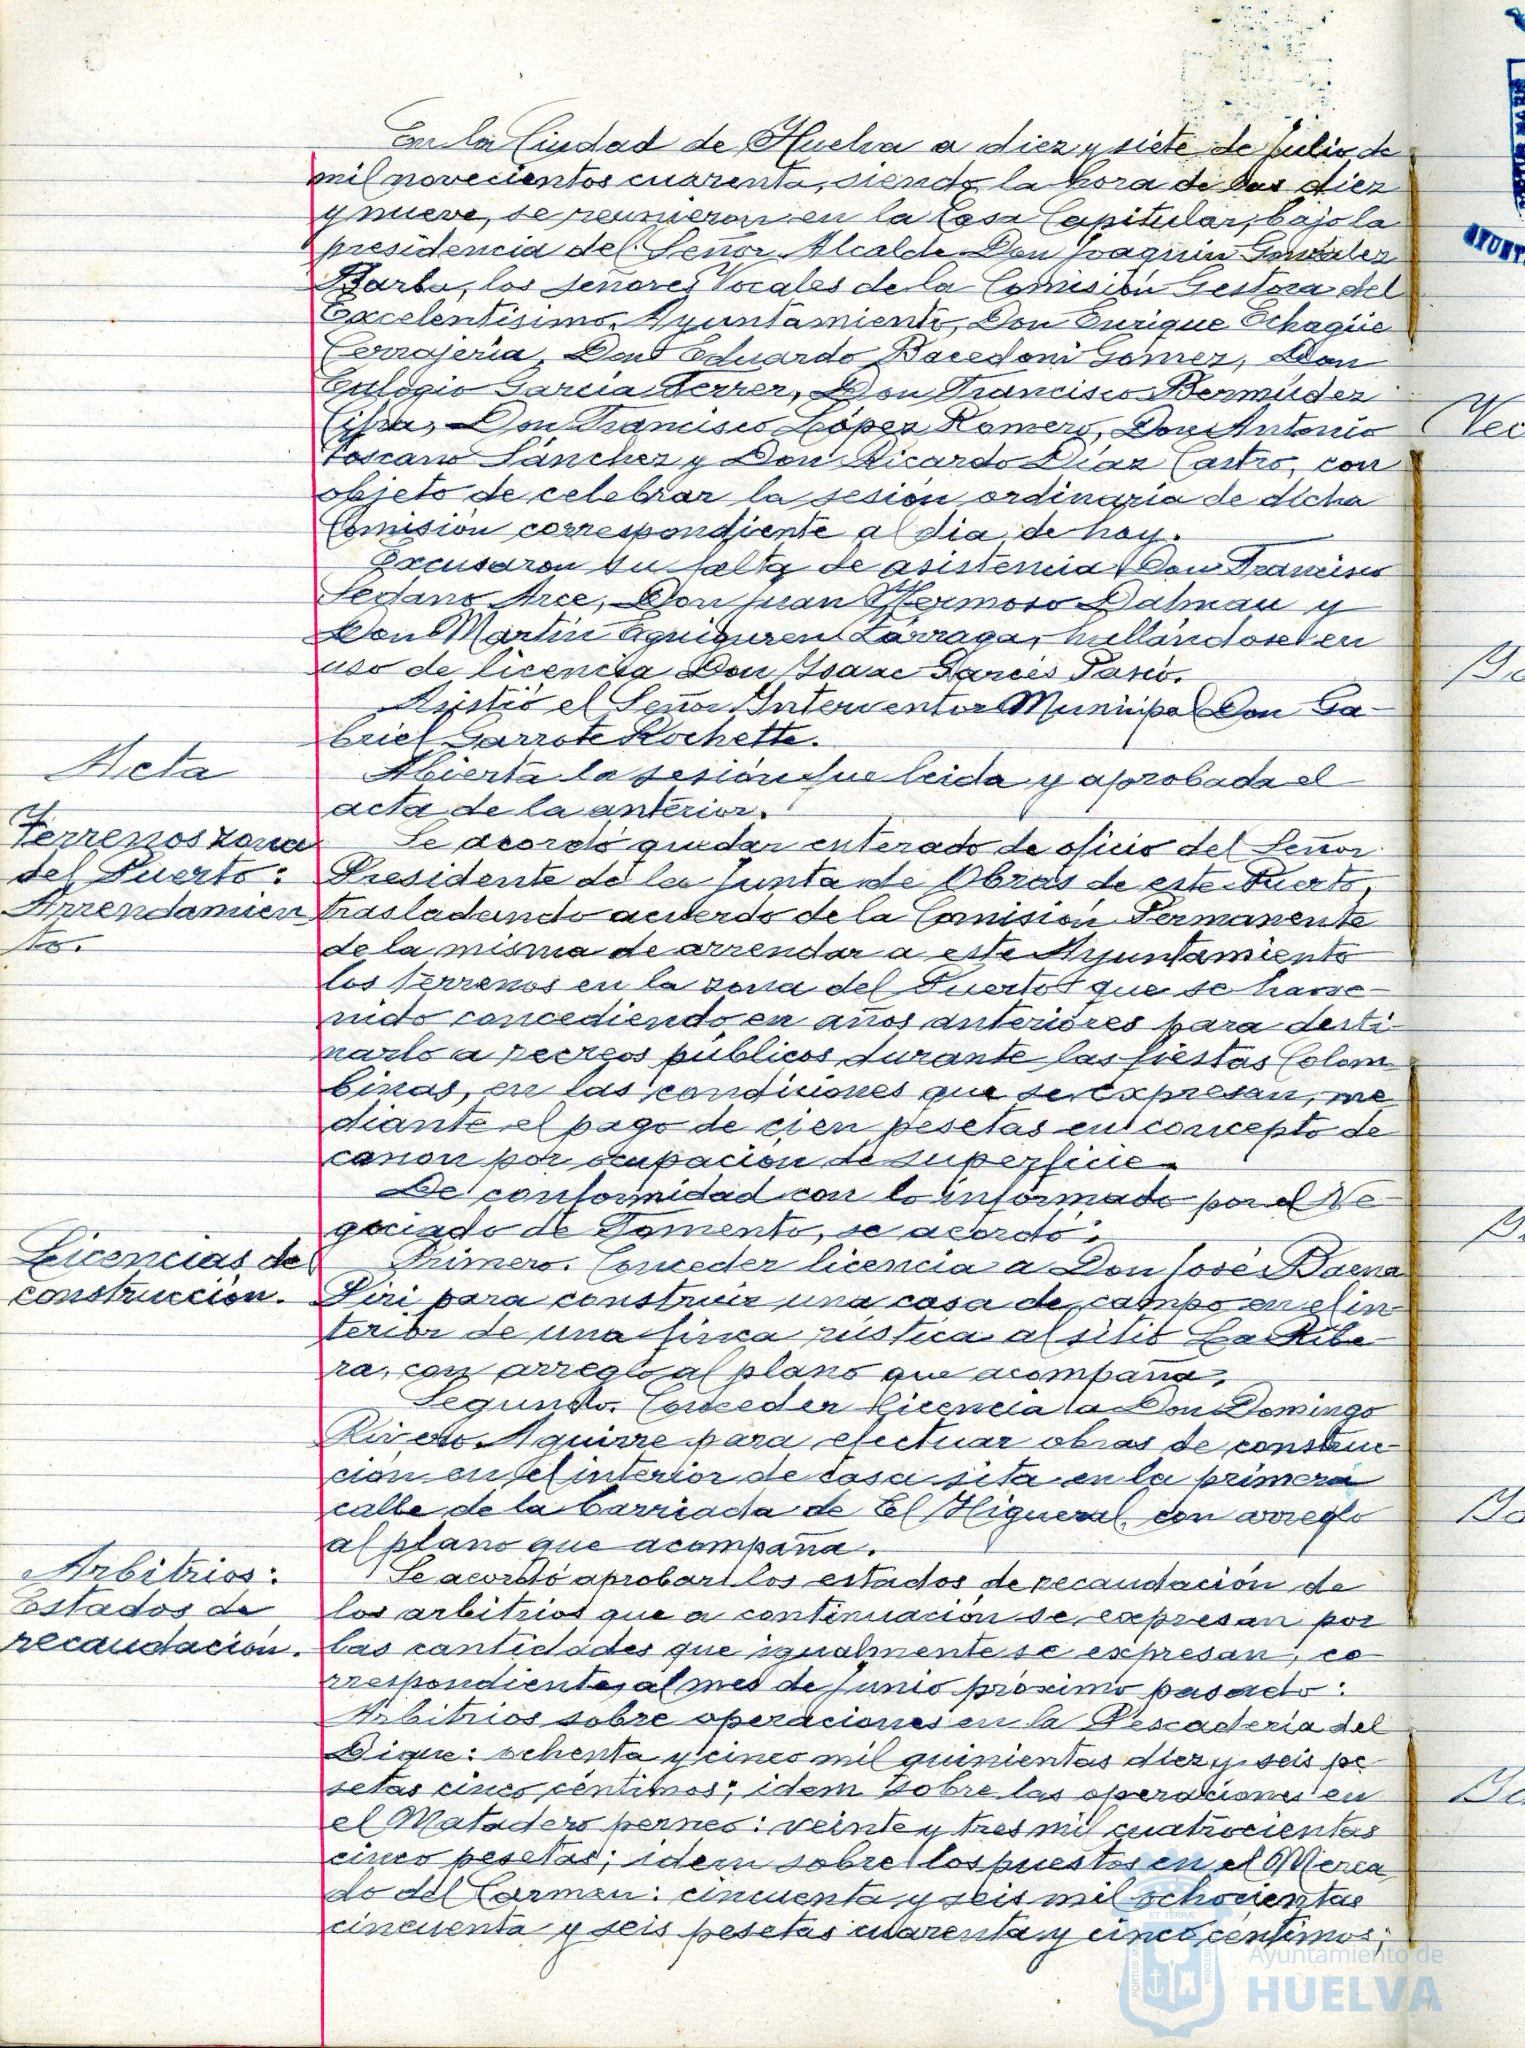 En la Ciudad de Huelva a diez y siete de Julio de
mil novecientos cuarenta, siendo la hora de las diez
y nueve, se reunieron en la Casa Capitular, bajo la
presidencia del Señor Alcalde Don Joaquin González
Barba, los señores Vocales de la Comisión Gestora del
Excelentísimo Ayuntamiento, Don Enrique Echagüe
Cerrajería, Don Eduardo Bacedoni Gómez, Don
Eulogio García Ferrer, Don Francisco Bermúdez
Cifra, Don Francisco López Romero, Don Antonio
Toscano Sánchez y Don Ricardo Díaz Castro, con
objeto de celebrar la sesión ordinaria de dicha
Comisión correspondiente al dia de hoy.
Excusaron su falta de asistencia Don Francisco
Sedano Arce, Don Juan Hermoso Dalmau y
Don Martín Eguiguren Lárraga, hallándose en
uso de licencia Don Ysaac Garcés
Asistió el Señor Ynterventor Municipal Don Ga-
briel Garrote Rochette.
Acta
Abierta la sesión fue leida y aprobada el
acta de la anterior.
Terrenos zona
del Puerto:
Arrendamien
to.
Se acordó quedar enterado de oficio del Señor
Presidente de la Junta de Obras de este Puerto,
trasladando acuerdo de la Comisión Permanente
de la misma de arrendar a este Ayuntamiento
los terrenos en la zona del Puerto que se han ve-
nido concediendo en años anteriores para desti-
narlo a recreos públicos durante las fiestas Colom
binas, en las condiciones que se expresan, me
diante el pago de cien pesetas en concepto de
canon por ocupación de superficie.
De conformidad con lo informado por el Ne-
gociado de Fomento, se acordó:
Licencias de
construcción.
Primero. Conceder licencia a Don José Baena
Piri para construir una casa de campo en el in-
terior de una finca rústica al sitio La Ribe-
ra, con arreglo al plano que acompaña.
Segundo. Conceder licencia a Don Domingo
Rivero Aguirre para efectuar obras de construc-
ción en el interior de casa sita en la primera
calle de la barriada de El Higueral, con arreglo
al plano que acompaña.
Arbitrios:
Estados de
recaudación.
Se acordó aprobar los estados de recaudación de
los arbitrios que a continuación se expresan por
las cantidades que igualmente se expresan, co-
rrespondientes al mes de Junio próximo pasado:
Arbitrios sobre operaciones en la Pescadería del
Dique: ochenta y cinco mil quinientas diez y seis pe
setas cinco céntimos; idem sobre las operaciones en
el Matadero perneo: veinte y tres mil cuatrocientas
cinco pesetas; idem sobre los puestos en el Merca
do del Carmen: cincuenta y seis mil ochocientas
cincuenta y seis pesetas cuarenta y cinco céntimos;
Ayuntamiento de
HUELVA